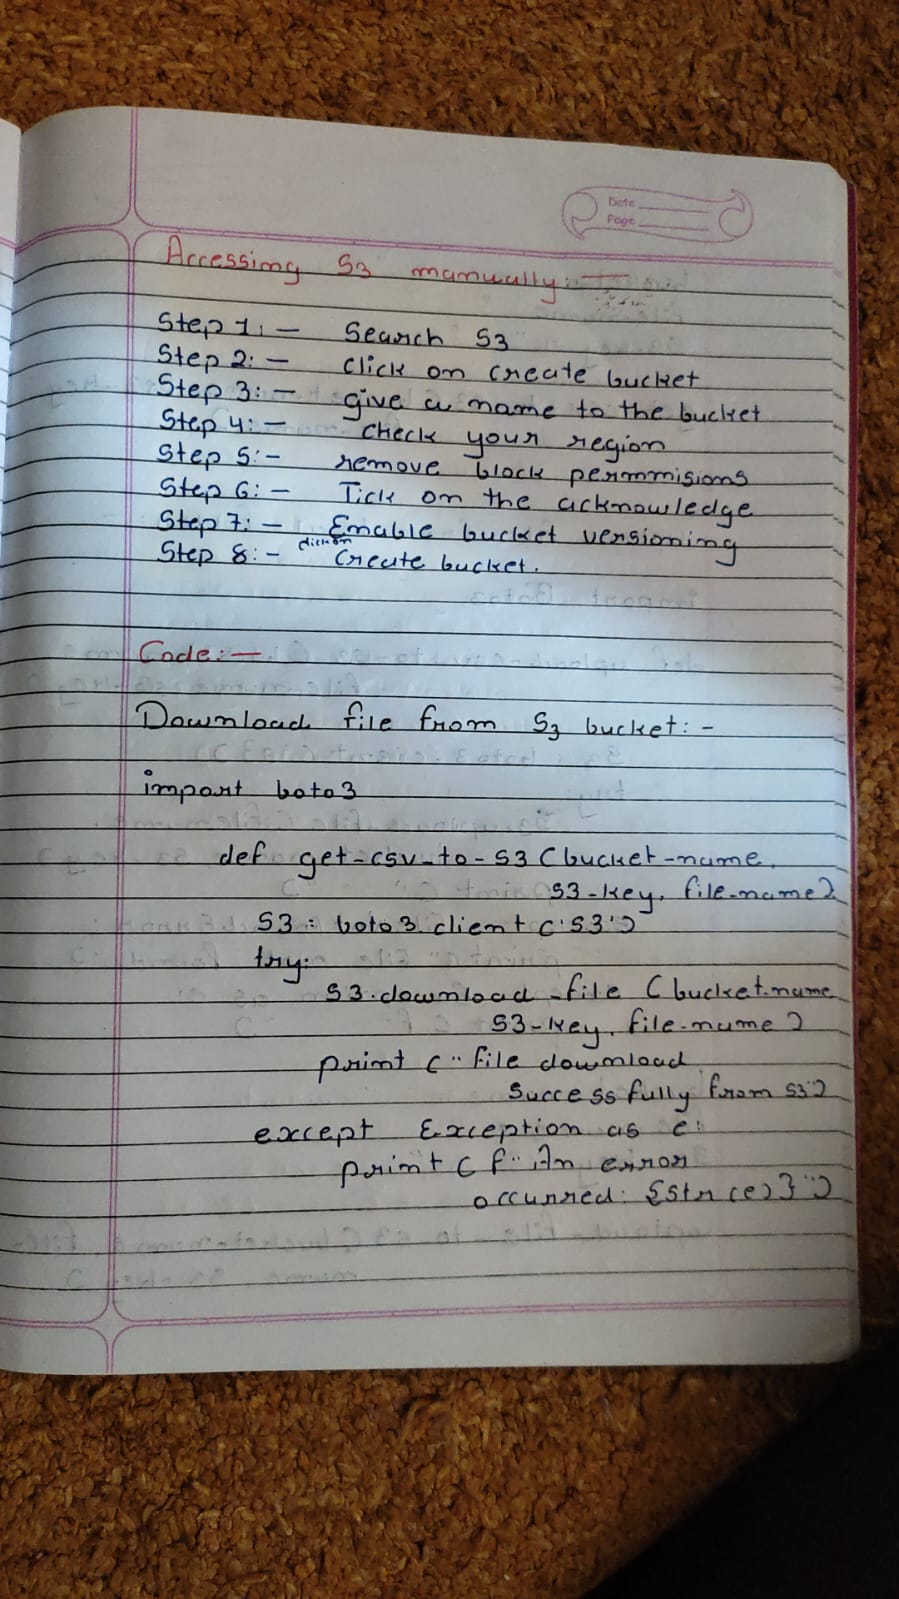 Date
Page
Accessing S3 manually:—
Step 1:— Search S3
Step 2:— click on create bucket
Step 3:— give a name to the bucket
Step 4:— check your region
Step 5:- remove block permmisions
Step 6:— Tick on the acknowledge
Step 7:— Enable bucket versioning
click on
Step 8:- Create bucket.
Code:—
Download file from S3 bucket:-
import boto3
def get-csv-to-S3 (bucket-name,
S3-key, file-name)
S3 = boto3.client ('S3')
try:
S3.download-file (bucket-name
S3-key, file-name)
print (" file download
Successfully from S3")
except Exception as e:
print (f" An error
occurred: {str(e)}")